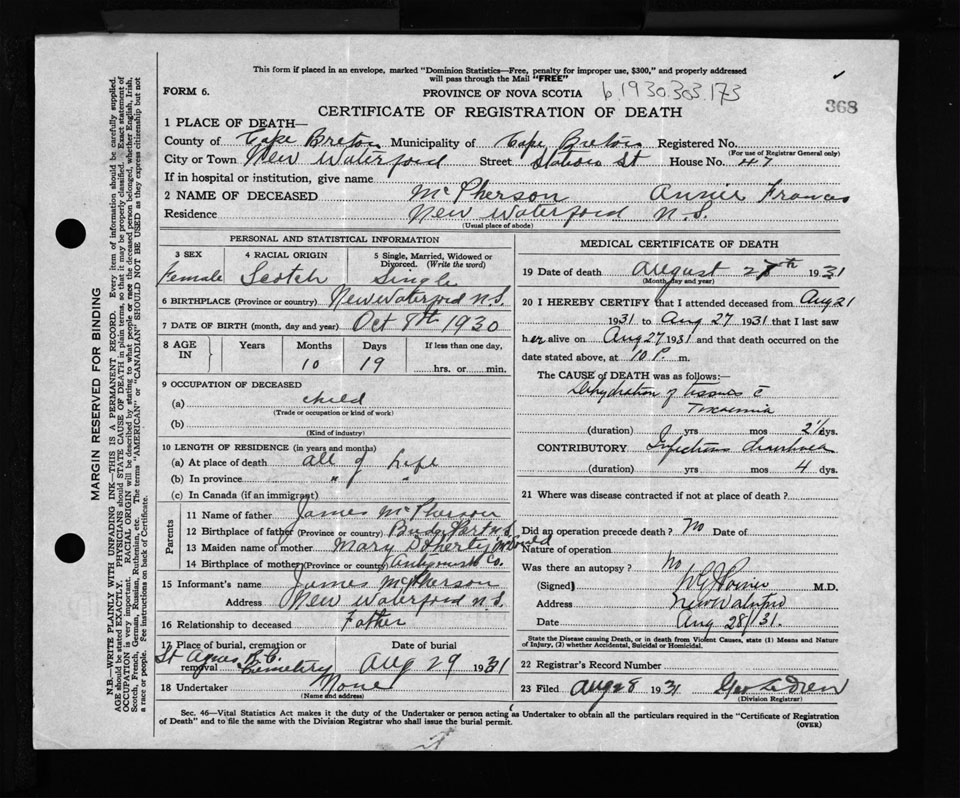 This form if placed in an envelope, marked "Dominion Statistics—Free, penalty for improper use, $300," and properly addressed
will pass through the Mail "FREE"
FORM 6.
PROVINCE OF NOVA SCOTIA
b.1930.303.173
368
CERTIFICATE OF REGISTRATION OF DEATH
1 PLACE OF DEATH—
County of Cape Breton Municipality of Cape Breton Registered No.
(For use of Registrar General only)
City or Town New Waterford Street Station St House No. 447
If in hospital or institution, give name
2 NAME OF DECEASED McPherson Annie Frances
Residence New Waterford N.S.
(Usual place of abode)
PERSONAL AND STATISTICAL INFORMATION
3 SEX
Female
4 RACIAL ORIGIN
Scotch
5 Single, Married, Widowed or
Divorced. (Write the word)
Single
6 BIRTHPLACE (Province or country) New Waterford N.S.
7 DATE OF BIRTH (month, day and year) Oct 8th 1930
8 AGE IN
Years
Months
10
Days
19
If less than one day,
hrs. or min.
9 OCCUPATION OF DECEASED
(a) child
(Trade or occupation or kind of work)
(b)
(Kind of industry)
10 LENGTH OF RESIDENCE (in years and months)
(a) At place of death all of Life
(b) In province " "
(c) In Canada (if an immigrant)
Parents
11 Name of father James McPherson
12 Birthplace of father (Province or country) N.S.
13 Maiden name of mother Mary
14 Birthplace of mother (Province or country) Antigonish Co.
15 Informant's name James McPherson
Address New Waterford N.S.
16 Relationship to deceased Father
17 Place of burial, cremation or
removal St Agnes R.C. Cemetery
Date of burial
Aug 29 1931
18 Undertaker None
(Name and address)
MEDICAL CERTIFICATE OF DEATH
19 Date of death August 27th 1931
(Month, day and year)
20 I HEREBY CERTIFY that I attended deceased from Aug 21
1931 to Aug 27 1931 that I last saw
her alive on Aug 27 1931 and that death occurred on the
date stated above, at 10 P. m.
The CAUSE of DEATH was as follows:—
Dehydration of tissues c̄
Toxaemia
(duration) yrs mos 2½ dys.
CONTRIBUTORY Infectious diarrhoea
(duration) yrs mos 4 dys.
21 Where was disease contracted if not at place of death ?
Did an operation precede death ? No Date of
Nature of operation
Was there an autopsy ? No
(Signed) Poirier M.D.
Address New Waterford
Date Aug 28/31.
State the Disease causing Death, or in death from Violent Causes, state (1) Means and Nature
of Injury, (2) whether Accidental, Suicidal or Homicidal.
22 Registrar's Record Number
23 Filed Aug 28 1931
(Division Registrar)
Sec. 46—Vital Statistics Act makes it the duty of the Undertaker or person acting as Undertaker to obtain all the particulars required in the "Certificate of Registration
of Death" and to file the same with the Division Registrar who shall issue the burial permit.
(OVER)
MARGIN RESERVED FOR BINDING
N.B.—WRITE PLAINLY WITH UNFADING INK—THIS IS A PERMANENT RECORD. Every item of information should be carefully supplied.
AGE should be stated EXACTLY. PHYSICIANS should STATE CAUSE OF DEATH in plain terms, so that it may be properly classified. Exact statement of
OCCUPATION is very important. RACIAL ORIGIN will be described by stating to what people or race the deceased person belonged, whether English, Irish,
Scotch, French, German, Russian, Ruthenian, etc. The terms "AMERICAN" or "CANADIAN" SHOULD NOT BE USED as they express citizenship but not
a race or people. See instructions on back of Certificate.